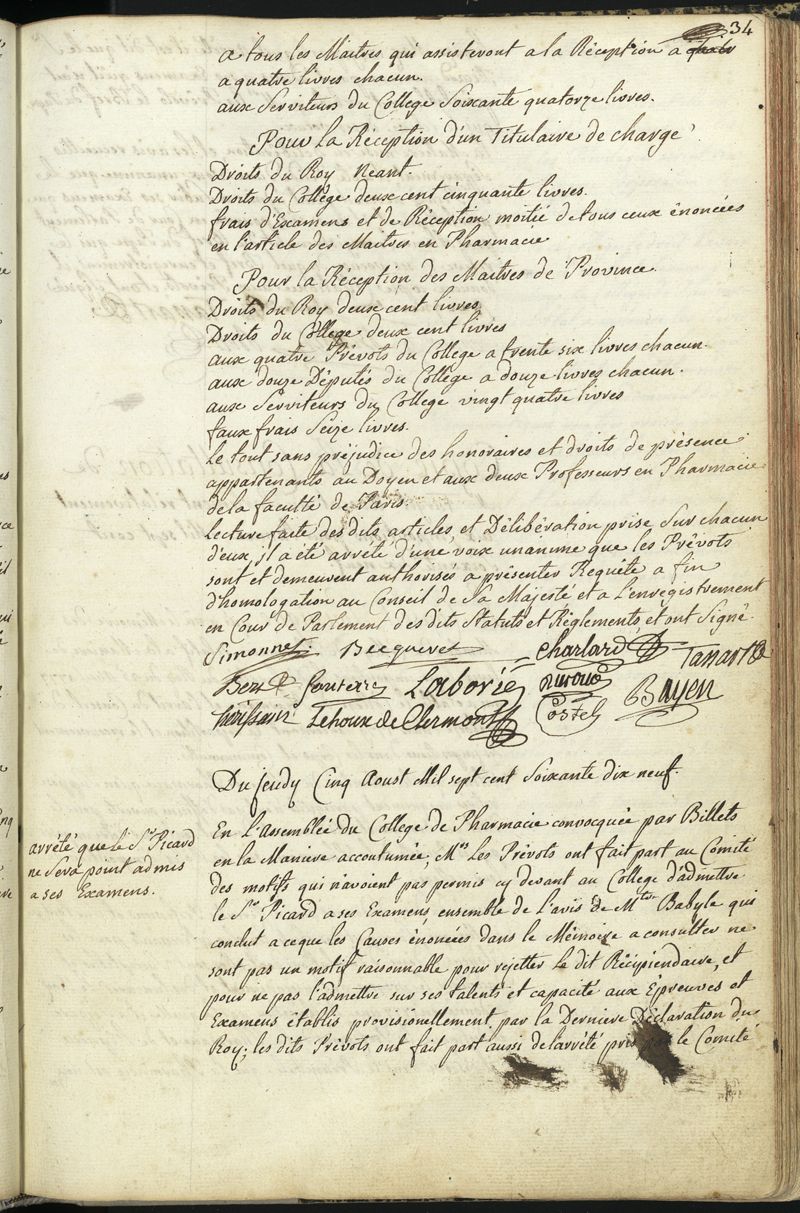 34
a tous les Maitres qui assisteront a la Réception a
a quatre livres chacun.
aux Serviteurs du College Soixante quatorze livres.
Pour la Réception d'un Titulaire de charge
Droits du Roy Neant.
Droits du Collége deux cent cinquante livres.
frais d'Examens et de Réception moitié de tous ceux énoncées
en l'article des Maitres en Pharmacie
Pour la Réception des Maitres de Province
Droits du Roy deux cent livres
Droits du College deux cent livres
aux quatre Prévots du College a trente six livres chacun.
aux douze Députés du College a douze livres chacun.
aux Serviteurs du College vingt quatre livres
faux frais Seize livres.
Le tout sans préjudice des honoraires et droits de présence
appartenants au Doyen et aux deux Professeurs en Pharmacie
de la faculté de Paris.
Lecture faite des dits articles, et Délibération prise Sur chacun
d'eux, il a été arrété d'une voix unanime que les Prévots
sont et demeurent authorisés a présenter Requête a fin
d'homologation au Conseil de Sa Majesté et a l'enregistrement
en Cour de Parlement des dits Statuts et Réglements et ont Signé
Simonnet Becqueret Charlard Tassart
Laborie
Lehoux de Clermont Costel Bayen
Du jeudy Cinq Aoust Mil sept cent Soixante dix neuf.
arrété que le Sr Picard
ne Sera point admis
a ses Examens.
En L'assemblée du College de Pharmacie convocquée par Billets
en la Maniere accoutumée, Mrs Les Prévots ont fait part au Comité
des motifs qui n'avoient pas permis cy devant au College d'admettre
le Sr Picard a ses Examens, ensemble de L'avis de Mtre Babyle qui
conclut a ce que les Causes énoncées dans le Mémoire a consulter ne
sont pas un motif raisonnable pour rejetter le dit Récipiendaire, et
pour ne pas l'admettre sur ses talents et capacité aux Epreuves et
Examens établis provisionellement par la Derniere Déclaration du
Roy; les dits Prévots ont fait part aussi de l'arrété pris par le Comité